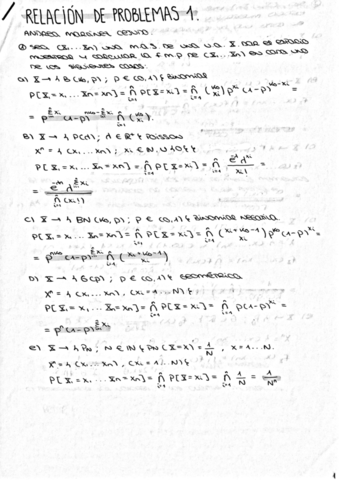 RELACIÓN DE PROBLEMAS 1.
ANDREA MARTÍNEZ
② SEA (X₁...Xn) UNA M.A.S DE UNA V.A X. DAR ES ESPACIO
MUESTRAL Y CALCULAR LA F.M.P DE (X₁...Xn) EN CADA UNO
DE LOS SIGUIENTES CASOS:
A) X → { B(k₀,p); p ∈ (0,1) } BINOMIAL
P[X₁=x₁...Xn=xn] = ∏ P[X=xᵢ] = ∏ (k₀ xᵢ) p^xᵢ (1-p)^(k₀-xᵢ) =
= p^Σxᵢ (1-p)^(nk₀-Σxᵢ) ∏ (k₀ xᵢ).
B) X → { P(λ); λ ∈ ℝ⁺ } POISSON
Xⁿ = { (x₁...xn); xᵢ ∈ N ∪ {0} }
P[X₁=x₁...Xn=xn] = ∏ P[X=xᵢ] = ∏ e^-λ λ^xᵢ / xᵢ! =
= e^-nλ λ^Σxᵢ / ∏(xᵢ!)
C) X → { BN(k₀,p); p ∈ (0,1) } BINOMIAL NEGATIVA
P[X₁=x₁...Xn=xn] = ∏ P[X=xᵢ] = ∏ (xᵢ+k₀-1 xᵢ) p^k₀ (1-p)^xᵢ =
= p^nk₀ (1-p)^Σxᵢ ∏ (xᵢ+k₀-1 xᵢ)
D) X → { G(p); p ∈ (0,1) } GEOMÉTRICA
Xⁿ = { (x₁...xn), (xᵢ=1...N) }
P[X₁=x₁...Xn=xn] = ∏ P[X=xᵢ] = ∏ p(1-p)^xᵢ =
= pⁿ(1-p)^Σxᵢ
E) X → { P_N; N ∈ N } P_N(X=x) = 1/N, x=1...N.
Xⁿ = { (x₁...xn), (xᵢ=1...N) }
P[X₁=x₁...Xn=xn] = ∏ P[X=xᵢ] = ∏ 1/N = 1/Nⁿ
1